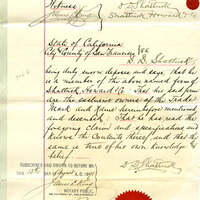 Witness
D. D. Shattuck
James L. King
Shattuck Howard & Co
State of California
City & County of San Francisco } SS
D. D. Shattuck
being duly sworn deposes and says, that he
is a member of the above named firm of
Shattuck Howard & Co. That his said firm
are the exclusive owners of the Trade
Mark and Name hereinbefore mentioned,
and described: That he has read the
foregoing claim and specification and
knows the Contents thereof and that the
same is true of his own knowledge
belief.
SUBSCRIBED AND SWORN TO BEFORE ME
THIS 15th DAY OF April A.D.
D. D. Shattuck
James L. King
NOTARY PUBLIC